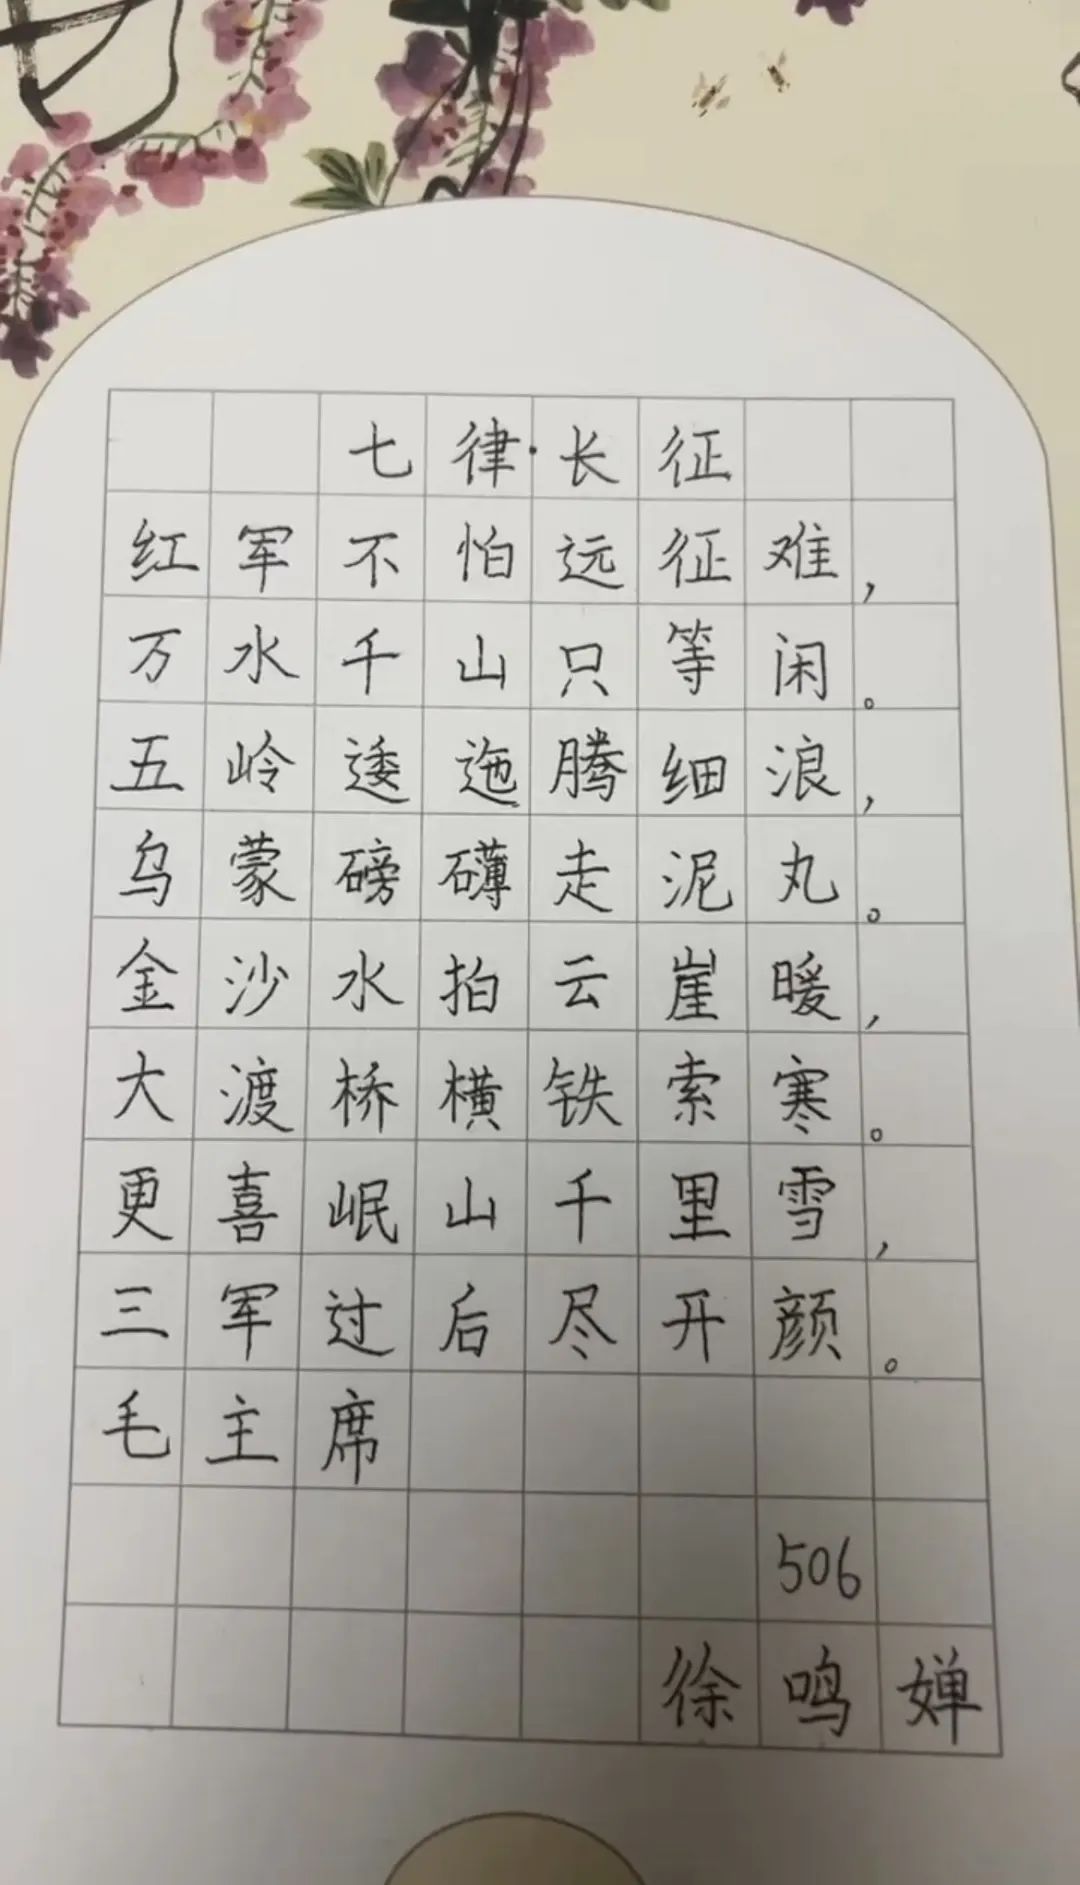 七律·长征
红军不怕远征难，
万水千山只等闲。
五岭逶迤腾细浪，
乌蒙磅礴走泥丸。
金沙水拍云崖暖，
大渡桥横铁索寒。
更喜岷山千里雪，
三军过后尽开颜。
毛主席
506
徐鸣婵